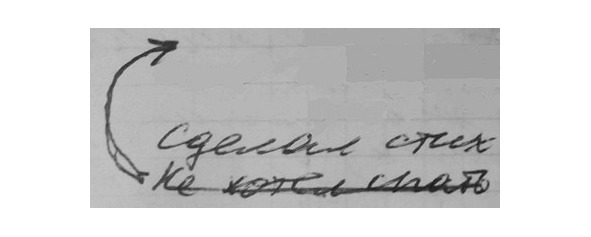 сделал стих
Не хотел спать